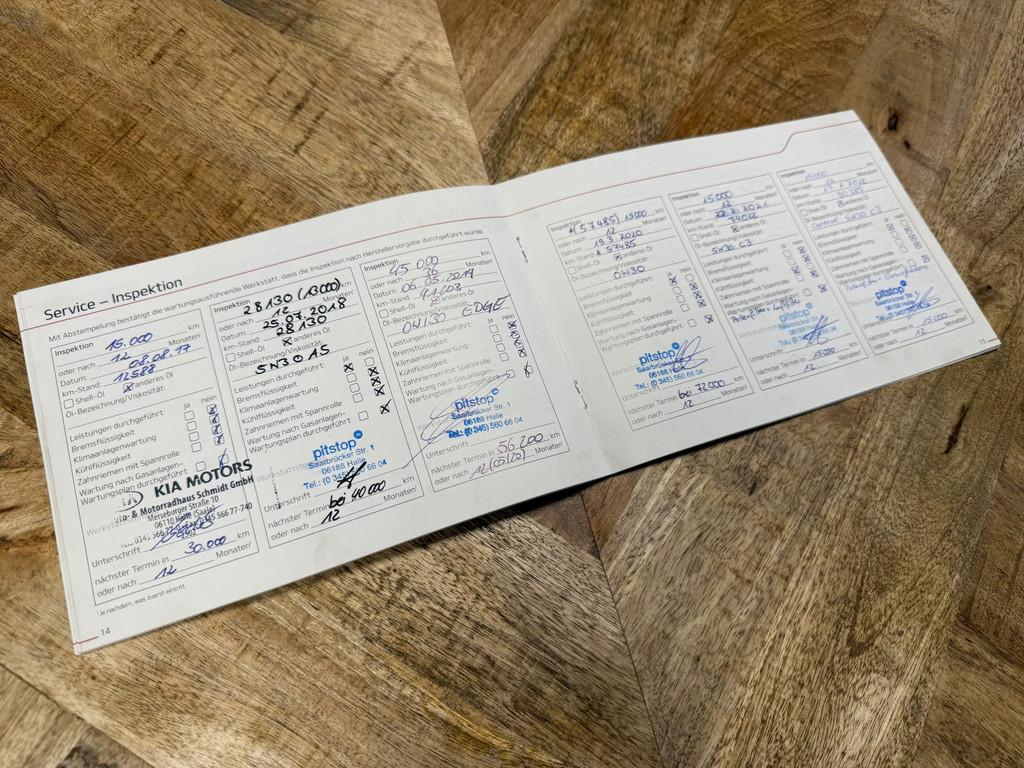 Service – Inspektion
Mit Abstempelung bestätigt die wartungsausführende Werkstatt, dass die Inspektion nach Herstellervorgabe durchgeführt wurde.
Inspektion 15.000 km
oder nach 12 Monaten
Datum 08.08.17
km-Stand: 12588
Shell-Öl anderes Öl
Öl-Bezeichnung/Viskosität:
Leistungen durchgeführt: ja nein
Bremsflüssigkeit
Klimaanlagenwartung
Kühlflüssigkeit
Zahnriemen mit Spannrolle
Wartung nach Gasanlagen-
Wartungsplan durchgeführt
KIA MOTORS
& Motorradhaus Schmidt GmbH
Merseburger Straße 10
06110 Halle (Saale)
Unterschrift
nächster Termin in 30.000 km
oder nach 12 Monaten
Je nachdem, was zuerst eintritt.
14
Inspektion 28130 (13000) km
oder nach 12 Monaten
Datum 25.07.2018
km-Stand: 28130
Shell-Öl anderes Öl
Öl-Bezeichnung/Viskosität:
5W30 A5
Leistungen durchgeführt: ja nein
Bremsflüssigkeit
Klimaanlagenwartung
Kühlflüssigkeit
Zahnriemen mit Spannrolle
Wartung nach Gasanlagen-
Wartungsplan durchgeführt
pitstop
Saarbrücker Str. 1
06188 Halle
Tel.: (0 345) 560 66 04
Unterschrift
nächster Termin bei 40000
oder nach 12 Monaten
Inspektion 45 000 km
oder nach 36 Monaten
Datum 06.05.2019
km-Stand:
Shell-Öl anderes Öl
Öl-Bezeichnung/Viskosität:
0W30 EDGE
Leistungen durchgeführt: ja nein
Bremsflüssigkeit
Klimaanlagenwartung
Kühlflüssigkeit
Zahnriemen mit Spannrolle
Wartung nach Gasanlagen-
Wartungsplan durchgeführt
pitstop
Saarbrücker Str. 1
06188 Halle
Tel.: (0 345) 560 66 04
Unterschrift
nächster Termin in 56.200 km
oder nach 12 (05/20) Monaten
Inspektion (57485) 15000 km
oder nach 12 Monaten
Datum 19.3.2020
km-Stand: 57485
Shell-Öl anderes Öl
Öl-Bezeichnung/Viskosität:
0W30
Leistungen durchgeführt: ja nein
Bremsflüssigkeit
Klimaanlagenwartung
Kühlflüssigkeit
Zahnriemen mit Spannrolle
Wartung nach Gasanlagen-
Wartungsplan durchgeführt
pitstop
Saarbrücker Str. 1
06188 Halle
Tel.: (0 345) 560 66 04
Unterschrift
nächster Termin bei 72000 km
oder nach 12 Monaten
Inspektion 15.000 km
oder nach 12 Monaten
Datum 22.2.2021
km-Stand: 74022
Shell-Öl anderes Öl
Öl-Bezeichnung/Viskosität:
5W30 C3
Leistungen durchgeführt: ja nein
Bremsflüssigkeit
Klimaanlagenwartung
Kühlflüssigkeit
Zahnriemen mit Spannrolle
Wartung nach Gasanlagen-
pitstop
Saarbrücker Str. 1
06188 Halle
Unterschrift
nächster Termin in 15000 km
oder nach 12 Monaten
Inspektion 15.000 km
oder nach Monaten
Datum
km-Stand:
Shell-Öl anderes Öl
Öl-Bezeichnung/Viskosität:
5W30 C3
Leistungen durchgeführt: ja nein
Bremsflüssigkeit
Klimaanlagenwartung
Kühlflüssigkeit
Zahnriemen mit Spannrolle
Wartung nach Gasanlagen-
pitstop
Saarbrücker Str. 1
06188 Halle
Unterschrift
nächster Termin in 15.000 km
oder nach 12 Monaten
15